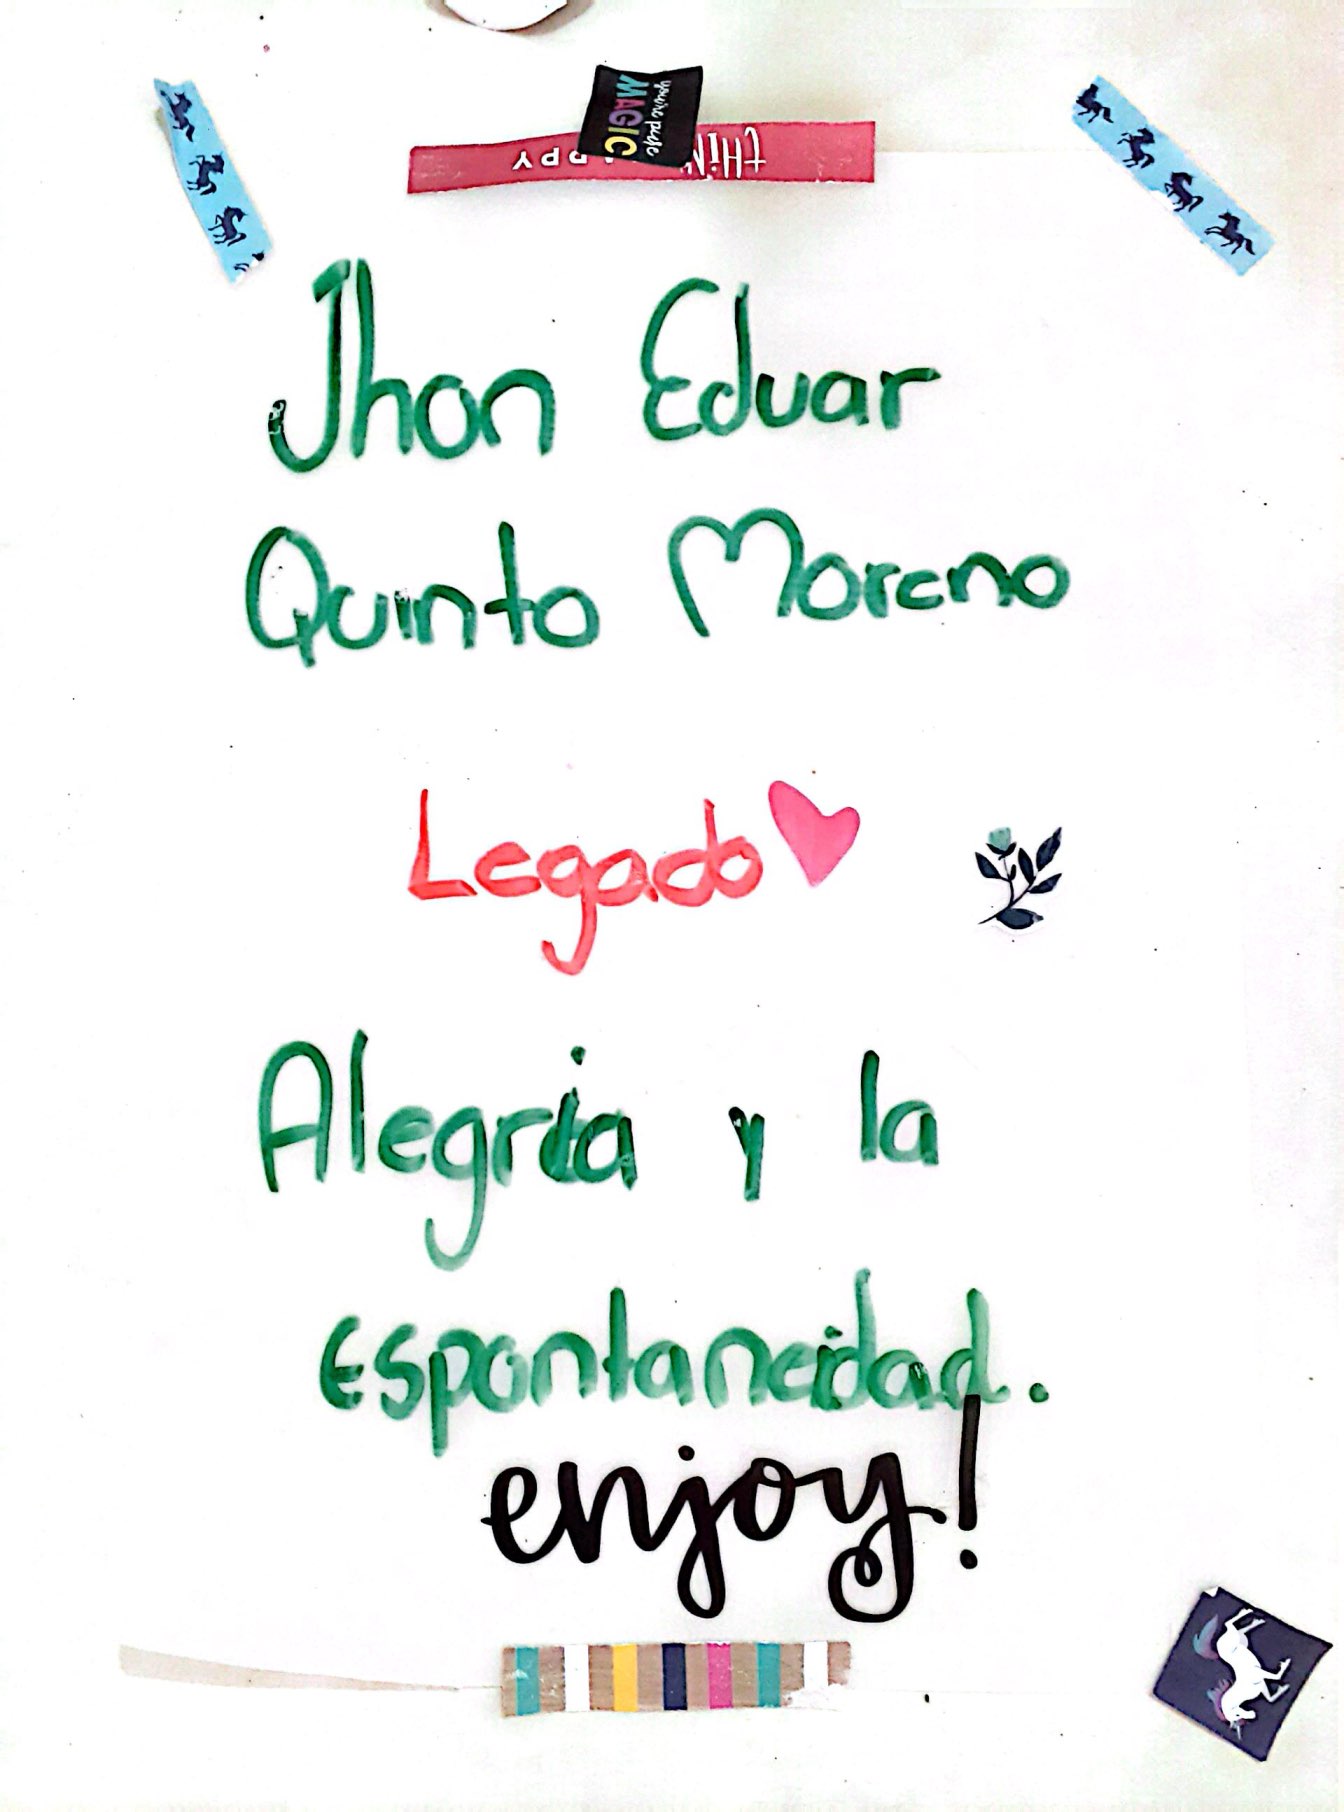 you're pure
MAGIC
tHiN APPY
Jhon Eduar
Quinto Moreno
Legado
Alegria y la
Espontaneidad.
enjoy!